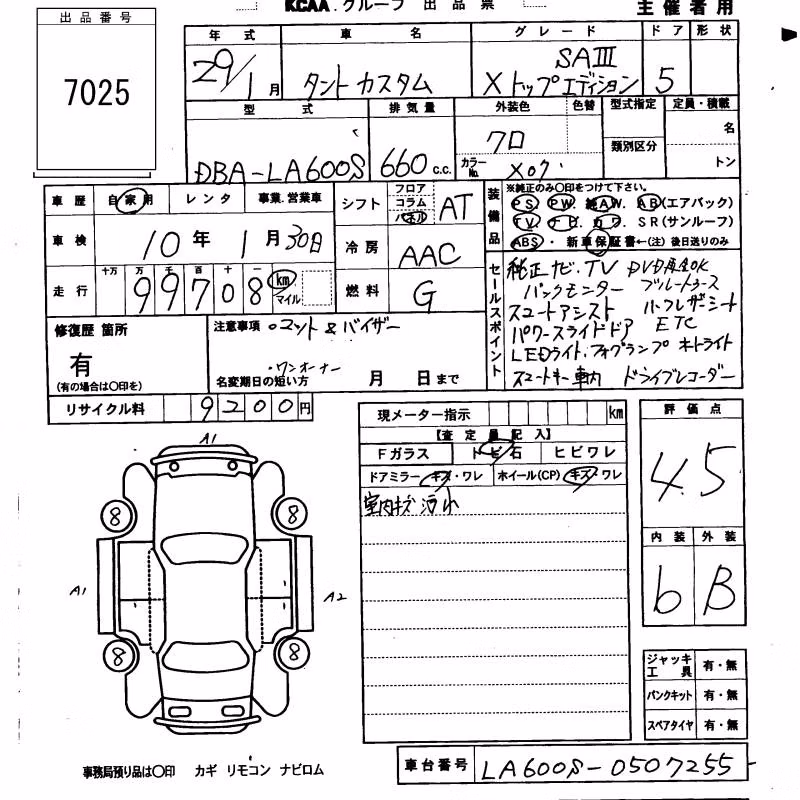 KCAA.グループ 出品票
主催者用
出品番号
7025
年式 車名 グレード ドア 形状
29/1月 タントカスタム X トップエディション SAIII 5
型式 排気量 外装色 色替 型式指定 定員・積載
類別区分
名
トン
DBA-LA600S 660c.c. クロ カラーNo. X07
車歴 自家用 レンタ 事業.営業車
車検 10年1月30日
走行 十万 万 千 百 十
99708 km マイル
シフト フロア コラム パネル AT
冷房 AAC
燃料 G
装備品 ※純正のみ○印をつけて下さい。
PS・PW・純AW・AB(エアバック)
TV・ナビ・カワ・SR(サンルーフ)
ABS・新車保証書←(注)後日送りのみ
セールスポイント
純正ナビ.TV DVD再生OK
バックモニター ブルートゥース
スマートアシスト ハーフレザーシート
パワースライドドア ETC
LEDライト.フォグランプ オートライト
スマートキー車内 ドライブレコーダー
修復歴 箇所
有
(有の場合は○印を)
注意事項 。マット&バイザー
。ワンオーナー
名変期日の短い方 月 日まで
リサイクル料 9200円
現メーター指示 km
【査定員記入】
Fガラス トビ石 ヒビワレ
ドアミラー キズ・ワレ ホイール(CP) キズ・ワレ
室内キズ汚れ
評価点
4.5
内装 外装
b B
A1
8 8
A1 A2
8 8
ジャッキ工具 有・無
パンクキット 有・無
スペアタイヤ 有・無
事務局預り品は○印 カギ リモコン ナビロム
車台番号 LA600S-0507255